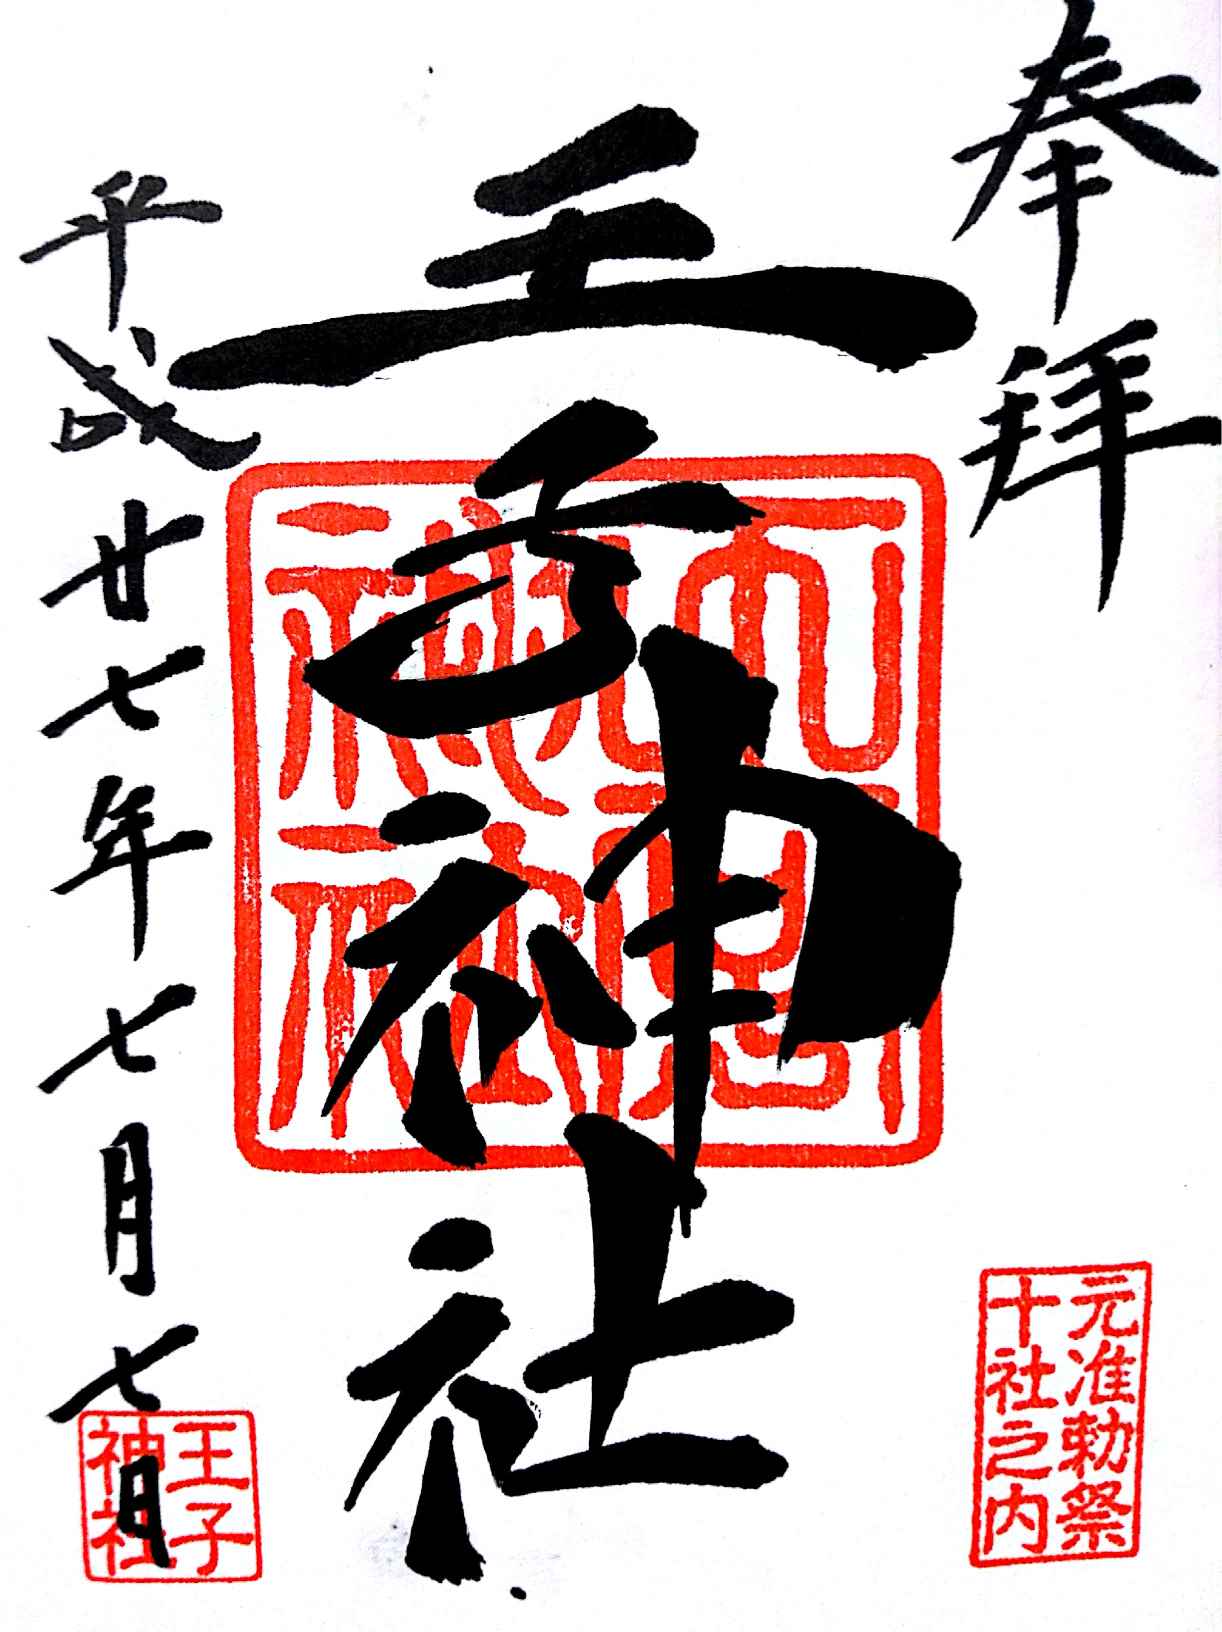 奉拝
元准勅祭
十社之内
王子神社
平成廿七年七月七日
王子
神社